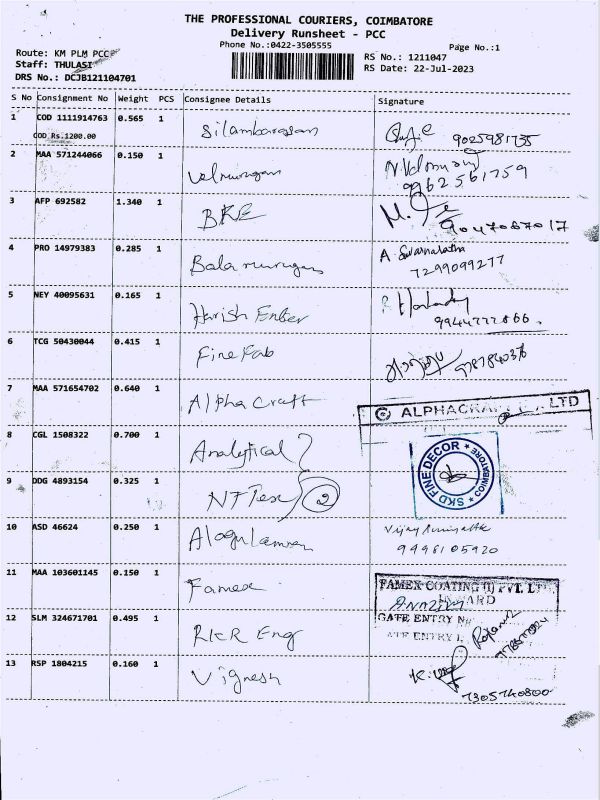 THE PROFESSIONAL COURIERS, COIMBATORE
Delivery Runsheet - PCC
Phone No.:0422-3505555
Page No.:1
Route: KM PLM PCC
Staff: THULASI
DRS No.: DCJB121104701
RS No.: 1211047
RS Date: 22-Jul-2023
S No Consignment No Weight PCS Consignee Details Signature
1 COD 1111914763 0.565 1 Silambarasan
COD Rs.1200.00
9025981735
2 MAA 571244066 0.150 1 Velmurugan
9962561759
3 AFP 692582 1.340 1 BKE
9047087017
4 PRO 14979383 0.285 1 Balamurugan
A Swarnalatha
7299099277
5 NEY 40095631 0.165 1 Harish Enter
9944777866
6 TCG 50430044 0.415 1 Fine Fab
7 MAA 571654702 0.640 1 Alpha Craft
ALPHACRAFT LTD
8 CGL 1508322 0.700 1 Analytical
SKD FINE DECOR * COIMBATORE *
9 DDG 4893154 0.325 1 NF Tex 2
10 ASD 46624 0.250 1
9498105920
11 MAA 103601145 0.150 1 Famex
FAMEX COATING (I) PVT. LTD
INWARD
GATE ENTRY N
12 SLM 324671701 0.495 1 RKR Eng
13 RSP 1804215 0.160 1 Vignesh
7305740800